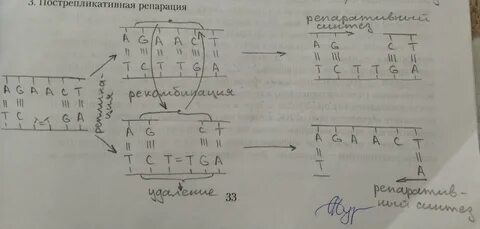 3. Пострепликативная репарация
репаративный синтез
A G A A C T
T C T T G A
A G C T
T C T T G A
рекомбинация
A G A A C T
T C G A
репликация
A G C T
T C T = T G A
A G A A C T
T A
удаление
репаратив-
ный синтез
33